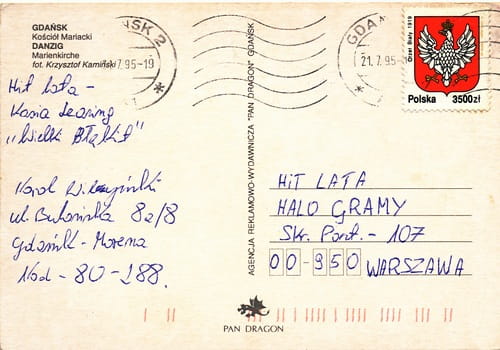 GDAŃSK
Kościół Mariacki
DANZIG
Marienkirche
fot. Krzysztof Kamiński
SK 2
7.95-19
GDA
21.7.95-
Orzeł Biały 1919
Polska 3500zł
Hit Lata -
Kasia
"Wielki Błękit"
Karol
ul. 8a/8
Gdańsk - Morena
Kod - 80-288.
AGENCJA REKLAMOWO-WYDAWNICZA "PAN DRAGON" GDAŃSK
HIT LATA
HALO GRAMY
Skr. Poczt. - 107
00-950 WARSZAWA
PAN DRAGON